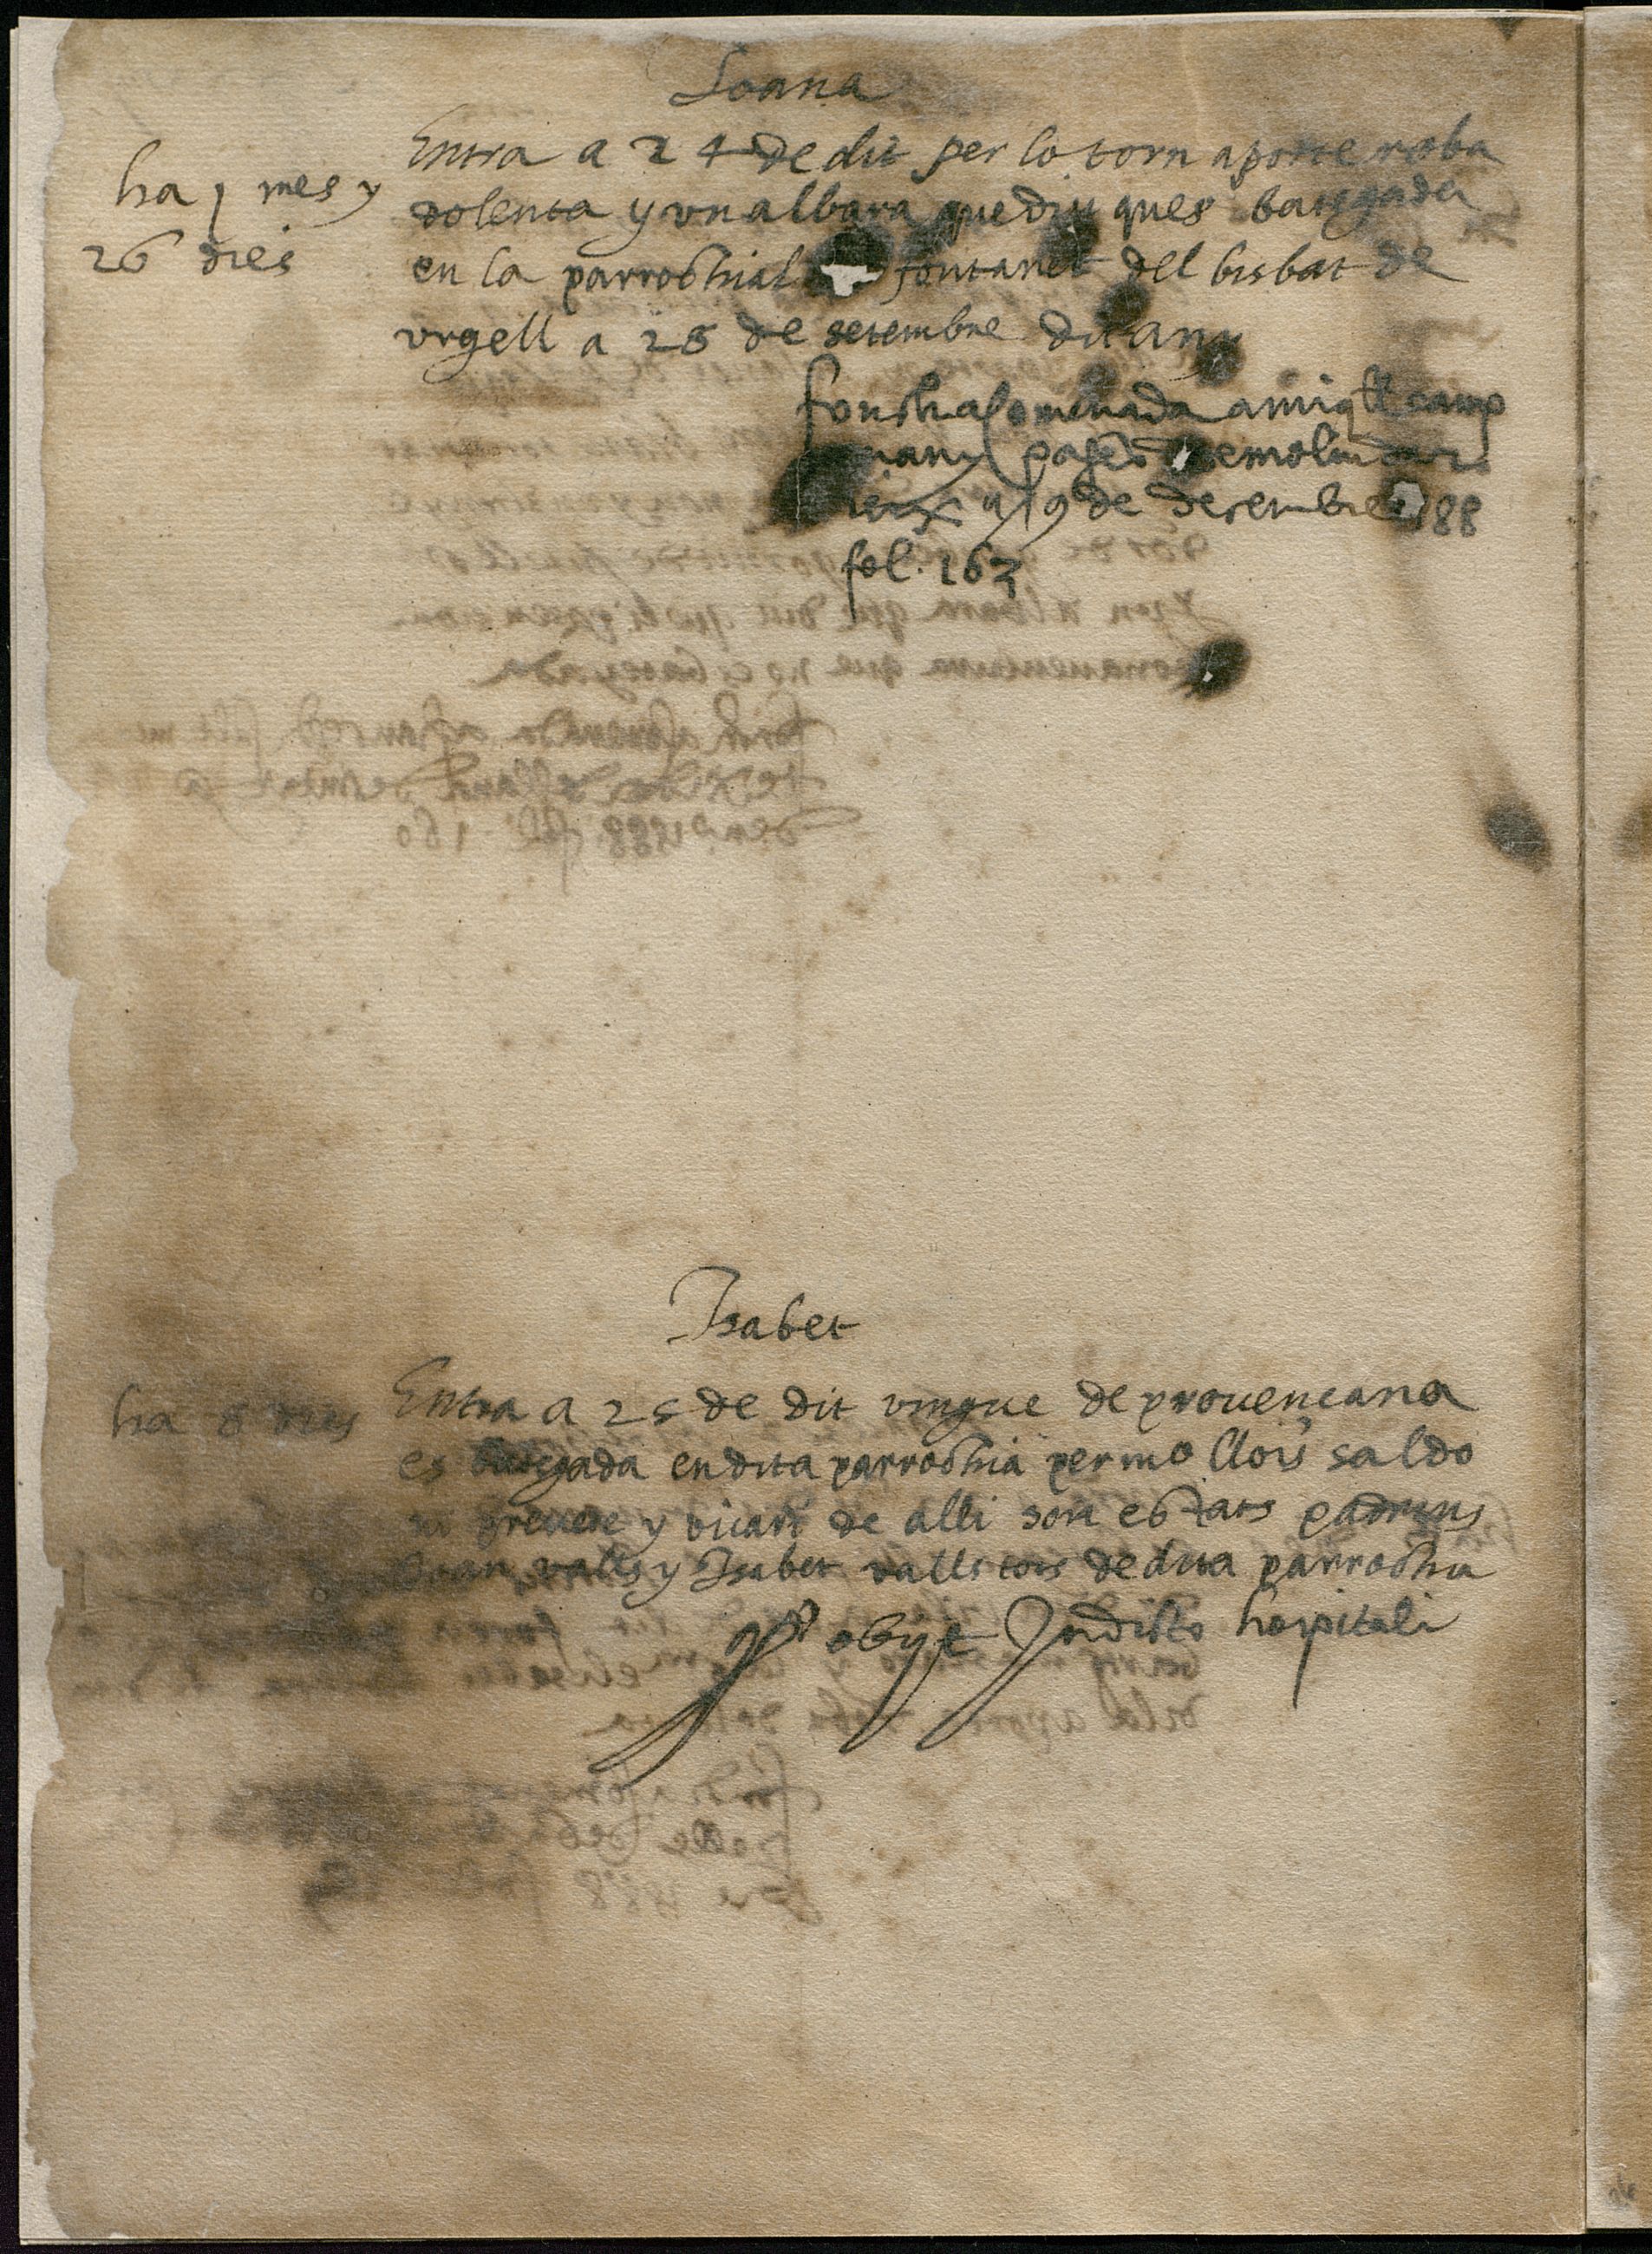 Ioana
Entra a 24 de dit per lo torn aporte roba
ha 1 mes y
dolenta y un albara que diu ques bategada
26 dies
en la parrochial fontanet del bisbat de
urgell a 28 de setembre dit any
fonch acomenada a miq ll camp
many pages de molin de
reix a 19 de desembre 1588
fol. 163
Isabet
ha 8 dies
Entra a 25 de dit vingue de provencana
es bategada en dita parrochia per mo llois saldo
ni prevere y vicari de alli son estats padrins
Joan valls y Isabet valls tots de dita parrochia
obijt In dicto hospitali